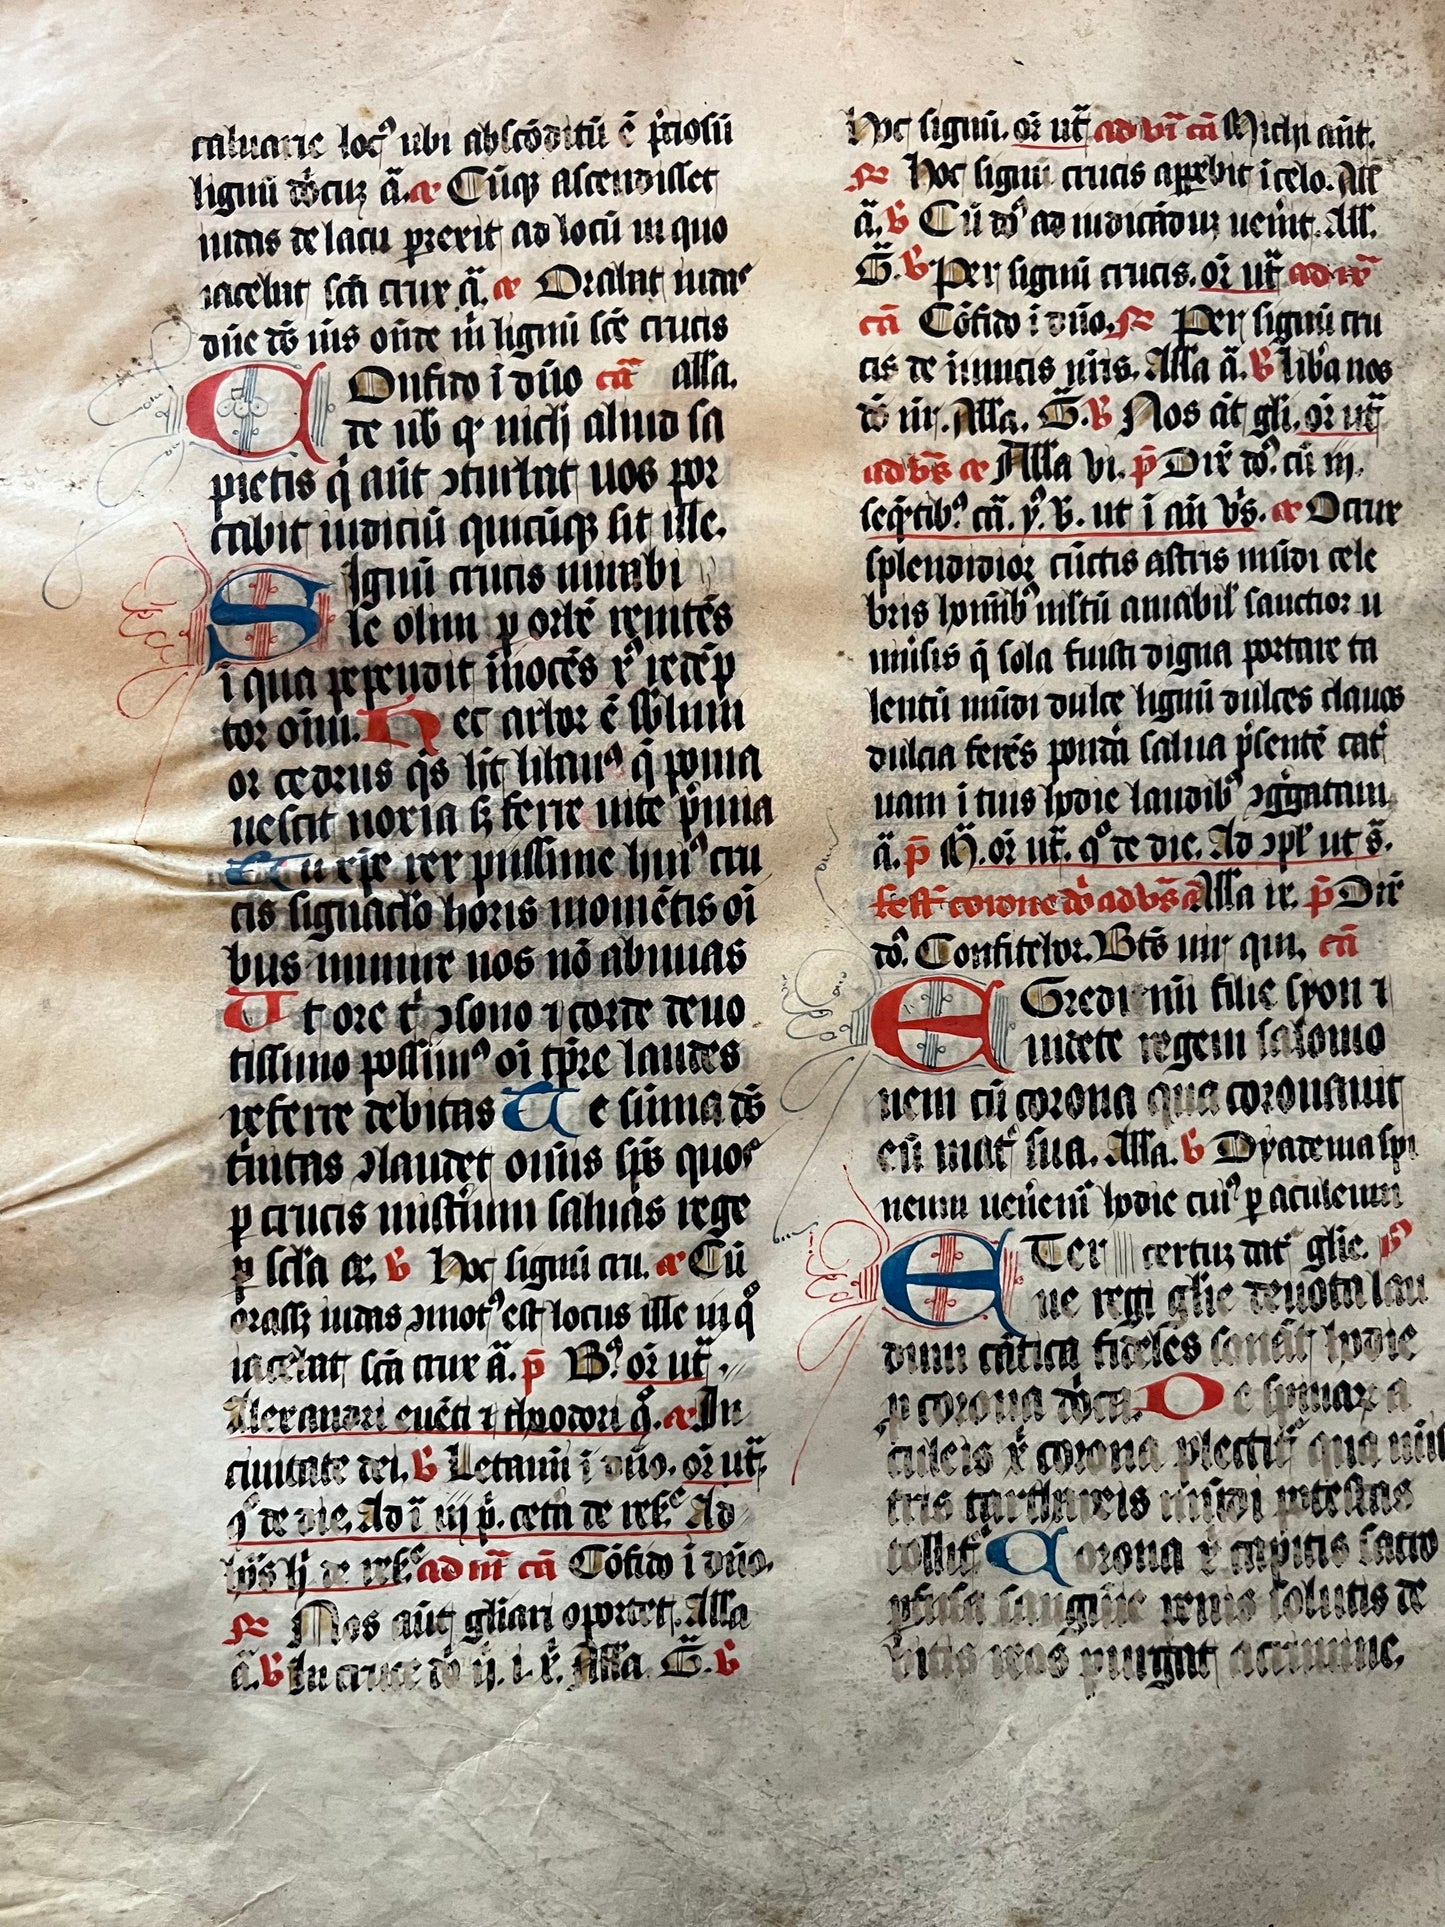 caluarie loc⁹ ubi abscōditū ē p̄ciosū
lignū dn̄icuꝫ ā. ae Cūqꝫ ascendisset
iudas de lacu perrexit ad locū in quo
iacebat sc̄a crux ā. ae Orabat iudas
dn̄e ds̄ m̄s on̄de m̄ lignū sc̄e crucis
COnfido ī dn̄o ca᷑ alla.
de vob qꝫ nich aliud sa
pietis q̄ aūt ↄturbat uos por
tabit iudiciū quicūqꝫ sit ille.
SIgnū crucis mirabi
le olim ꝑ orbē renitēs
ī qua pependit inocēs xp̄ redēp
tor oīm. Hec arbor ē sublimi
or cedrus q̄s hīt liban⁹ q̄ poma
nescit noxia sꝫ ferre uite p̄mia
Tu xp̄e rex piissime hui⁹ cru
cis signaclo horis momētis oī
bus munire nos nō abnuas
Ut ore t̄ ↄsono ⁊ corde deuo
tissimo possim⁹ oī tp̄re laudes
referre debitas Te sūma ds̄
t̄nitas ↄlaudet omīs sps̄ quos
ꝑ crucis mist̄ium saluas rege
ꝑ scl̄a ae. V Hoc signū cru. ae Cū
orassꝫ iudas ↄmot⁹ est locus ille in q̊
iacebat sc̄a crux ā. p̄ B⁹ or̄ ut᷑
Alexandri euēti ⁊ theodori q̊. ae In
ciuitate dei. V Letamī ī dn̄o. or̄ ut᷑
q̊ de die. Ad ī iij p̄. cetā de
ad m᷑ ca᷑ Cōfido ī dn̄o.
R Nos aūt gl̄iari oportet. Alla
ā. V In cruce dn̄ Alla. G̅. V
Hoc signū. or̄ ut᷑ ad vi᷑ ca᷑ Michi aūt.
R Hoc signū crucis apparebit ī celo. All
ā. V Cū dn̄s ad iudicāduꝫ ueīt. All.
G̅. V Per signū crucis. or̄ ut᷑ ad ix᷑
ca᷑ Cōfido ī dn̄o. R Per signū cru
cis de inimicis n̄ris. Alla ā. V Liba nos
ds̄ n̄r. Alla. G̅. V Nos āt gli. or̄ ut᷑
ad vs̄ ae Alla vi. p̄ Dix̄ dn̄s. cū iij
seq̄ntib⁹. ca᷑. y⁹. V. ut ī aīi vs̄. ae O crux
splendidior cūctis astris mūdi cele
bris hoīnib⁹ mltū amabil̄ sanctior u
niūsis q̄ sola fuisti digna portare ta
lentū mūdi dulce lignū dulces clauos
dulcia ferēs pondā salua p̄sentē cat̄
uam ī tuis hodie laudib⁹ ↄg̊gatam
ā. p̄ M̄. or̄ ut᷑. q̊ de die. Ad ↄpl̄ ut s̄.
Fest᷑ corone dn̄i ad vs̄ ā Alla ix. p̄ Dix̄
dn̄s. Confitebor. Bt̄s uir qui, ca᷑
EGredimī filie syon ⁊
uidete regem salomo
nem cū corona qua coronauit
eū mat̄ sua. Alla. V Dyadema spi
neum ueneml̄ hodie cui⁹ ꝑ aculeum
ETer certuꝫ dat᷑ glie. ym⁹
ne regi glie deuota lau
dum cātica fideles sonāt hodie
ꝑ corona dn̄ica. De spinaꝝ a
culeis xp̄ corona plectit᷑ qua mīs
tris tarthareis mūdi potestas
tollit᷑ Corona xp̄ capitis sacro
ꝑfusa sanguine penis solutis de
bitis reos purgat a crimine.